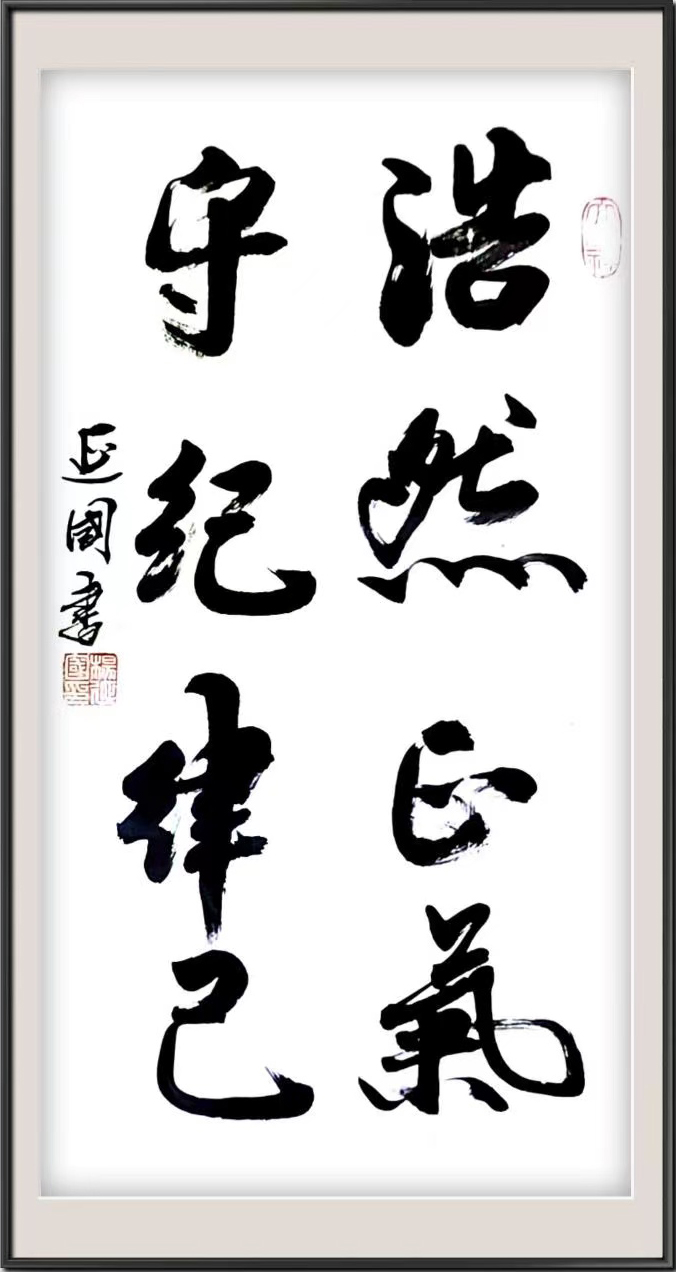 浩然正氣
守纪律己
延國書